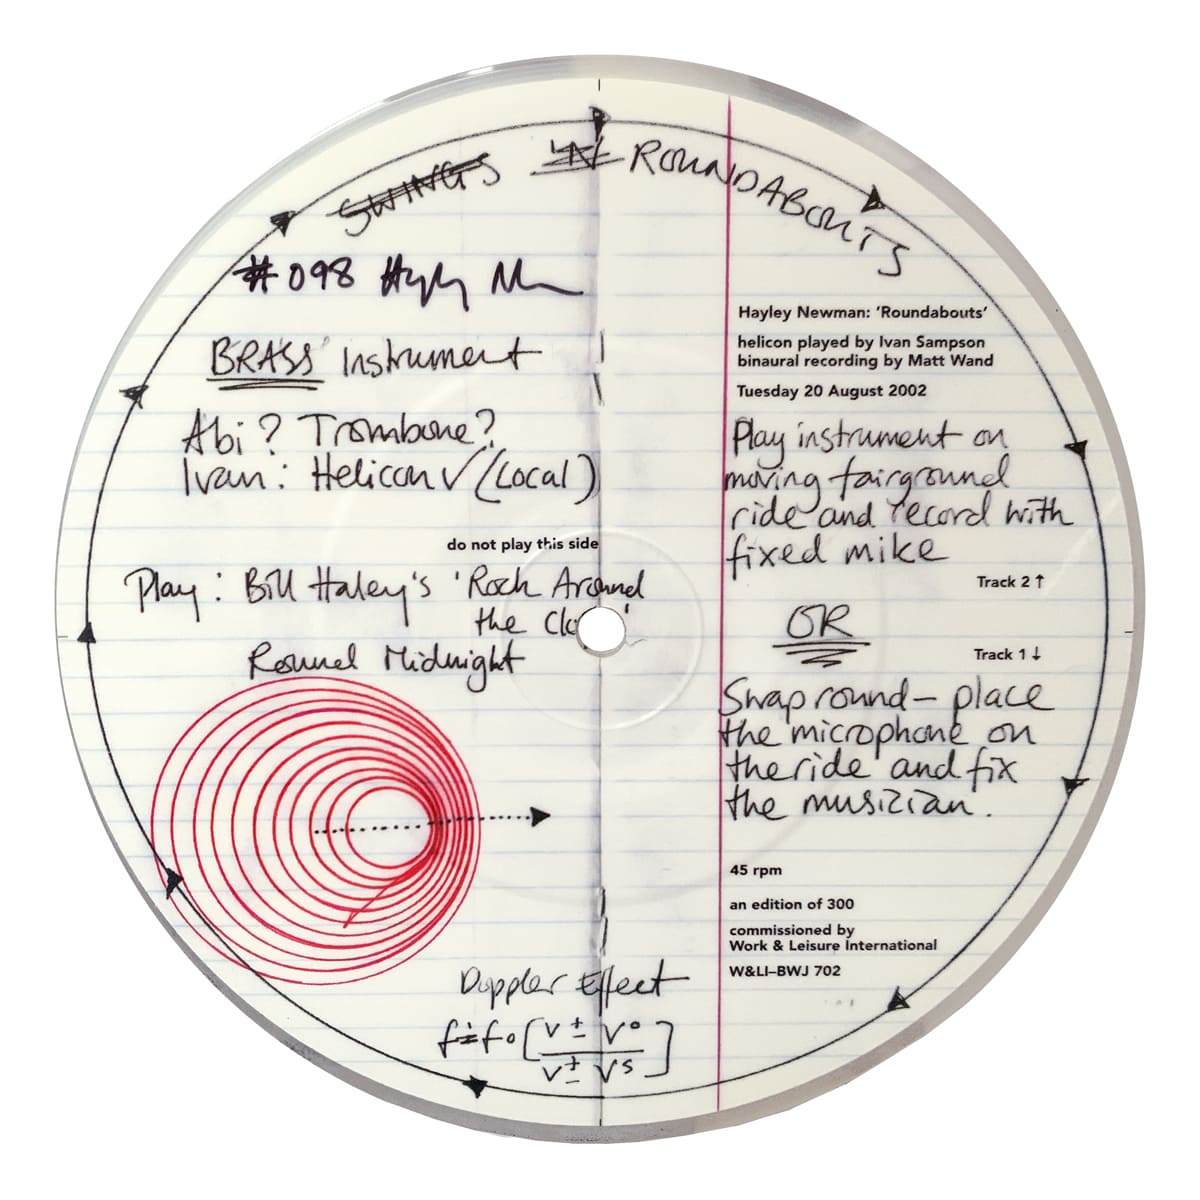 SWINGS 'N' ROUNDABOUTS
#098 Hayley
BRASS Instrument
Abi? Trombone?
Ivan: Helicon √ (Local)
do not play this side
Play: Bill Haley's 'Rock Around
the
Round Midnight
Doppler Effect
f=fo[v ± vo
v ± vs]
Hayley Newman: 'Roundabouts'
helicon played by Ivan Sampson
binaural recording by Matt Wand
Tuesday 20 August 2002
Play instrument on
moving fairground
ride and record with
fixed mike
Track 2 ↑
OR
Track 1 ↓
Swap round – place
the microphone on
the ride and fix
the musician.
45 rpm
an edition of 300
commissioned by
Work & Leisure International
W&LI–BWJ 702